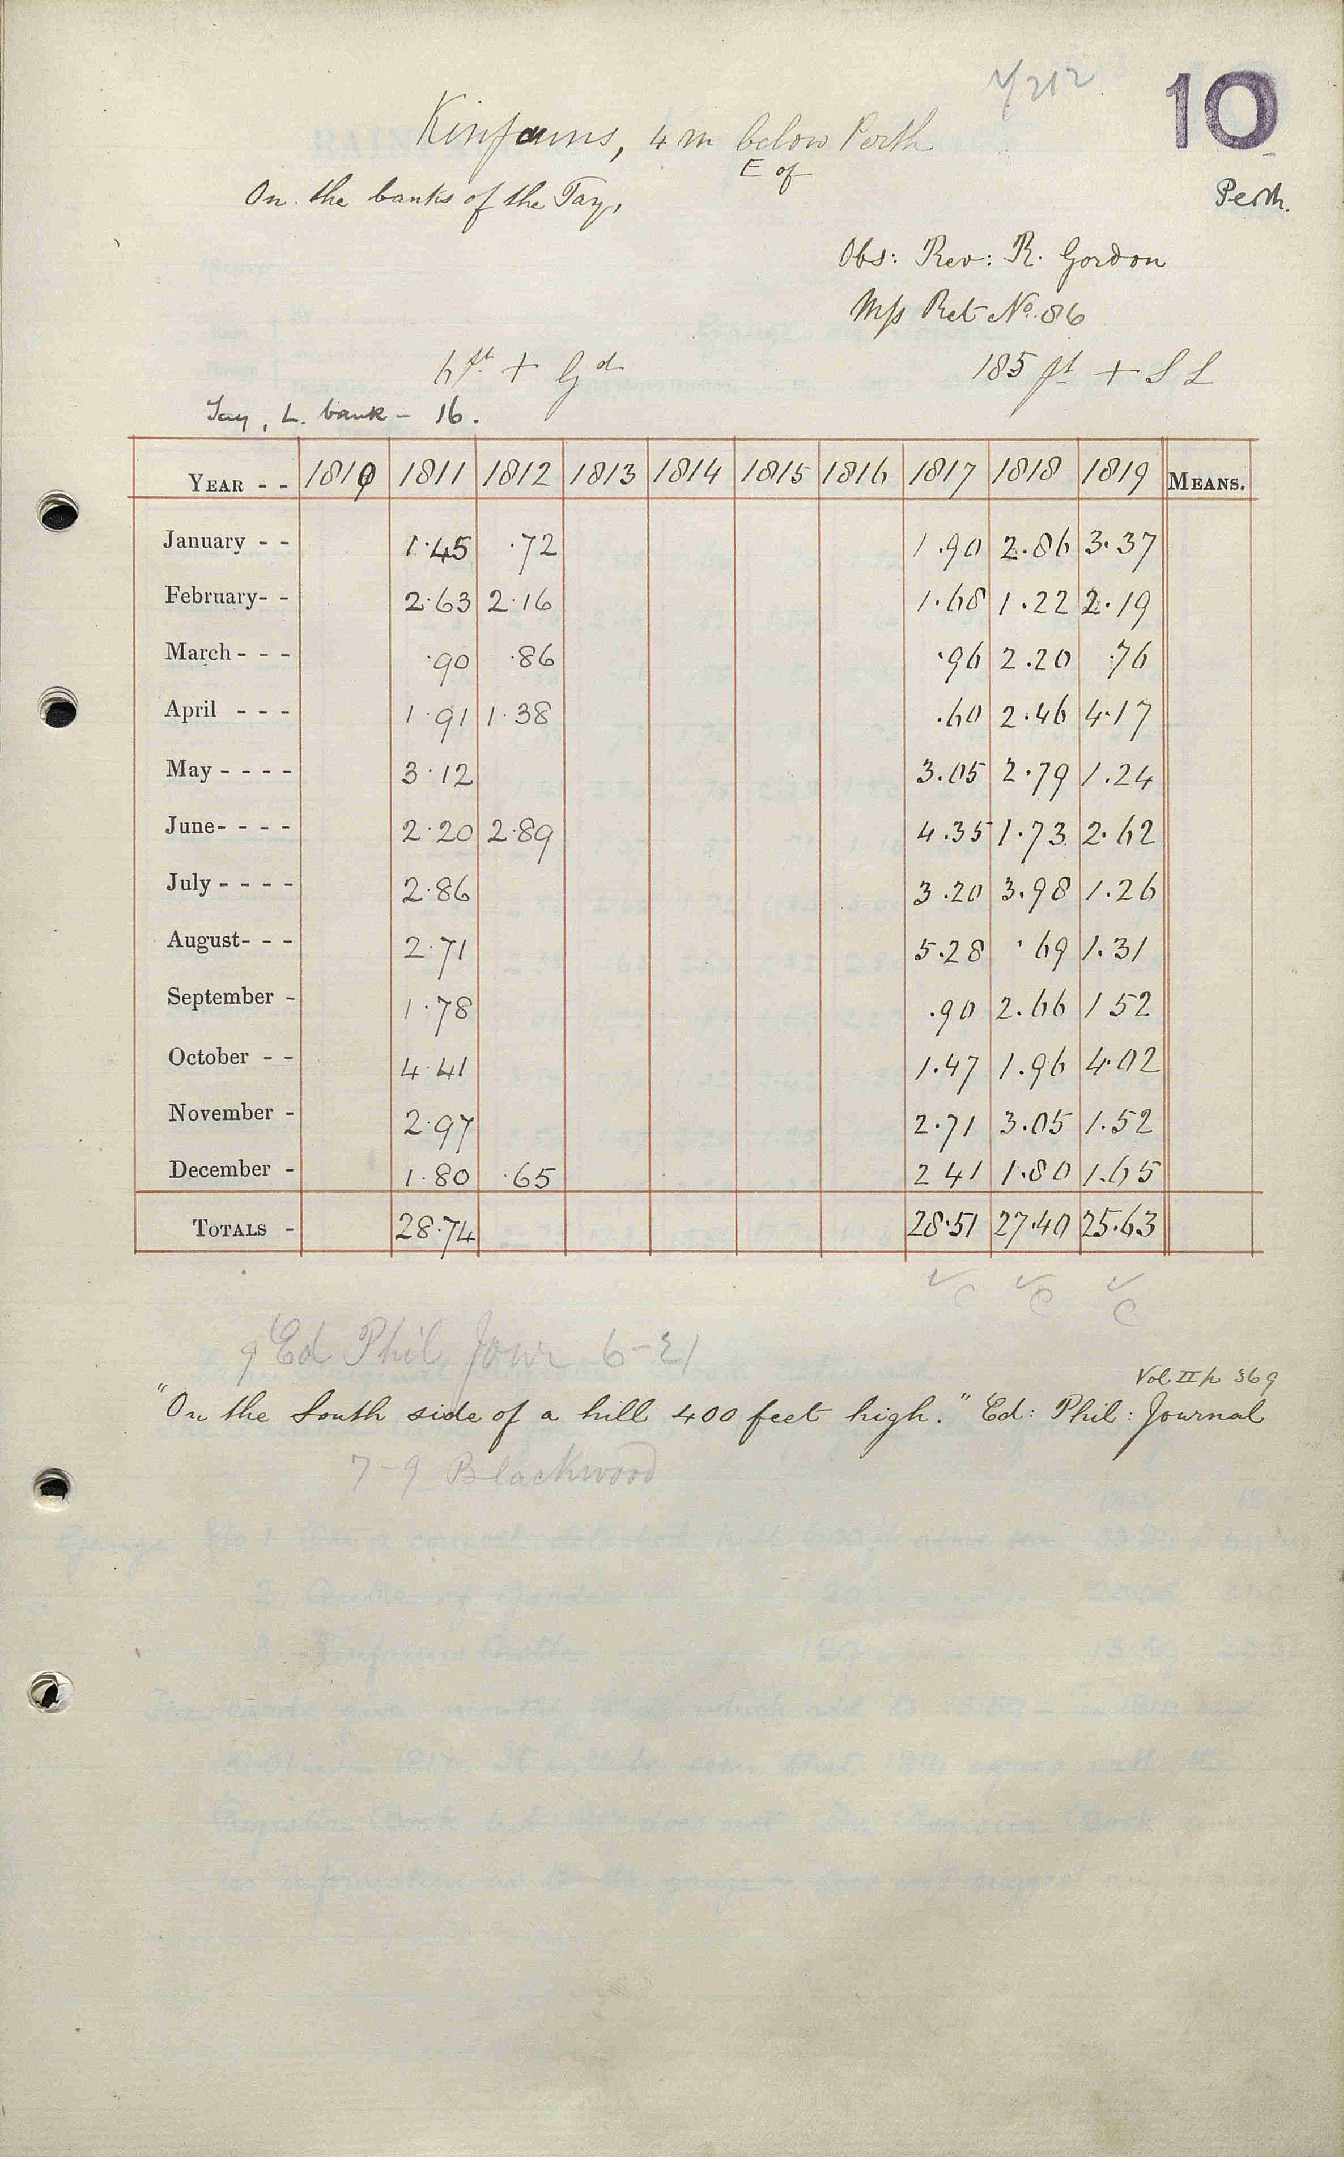 10
Kinfauns, 4 m below Perth
E of
On the banks of the Tay,
Perth.
Obs: Rev: R. Gordon
Mss Ret No. 86
ft + Gd
185 ft + S L
Tay, L. bank - 16.
YEAR - - 1810 1811 1812 1813 1814 1815 1816 1817 1818 1819 MEANS.
January - - 1.45 .72 1.90 2.86 3.37
February- - 2.63 2.16 1.68 1.22 2.19
March - - - .90 .86 .96 2.20 .76
April - - - 1.91 1.38 .60 2.46 4.17
May - - - - 3.12 3.05 2.79 1.24
June- - - - 2.20 2.89 4.35 1.73 2.62
July - - - - 2.86 3.20 3.98 1.26
August- - - 2.71 5.28 .69 1.31
September - 1.78 .90 2.66 1 52
October - - 4.41 1.47 1.96 4.02
November - 2.97 2.71 3.05 1.52
December - 1.80 .65 2 41 1.80 1.65
TOTALS - 28.74 28.51 27.40 25.63
Ed Phil Jour 6-21
Vol II p 369
"On the South side of a hill 400 feet high." Ed: Phil: Journal
7-9 Blackwood